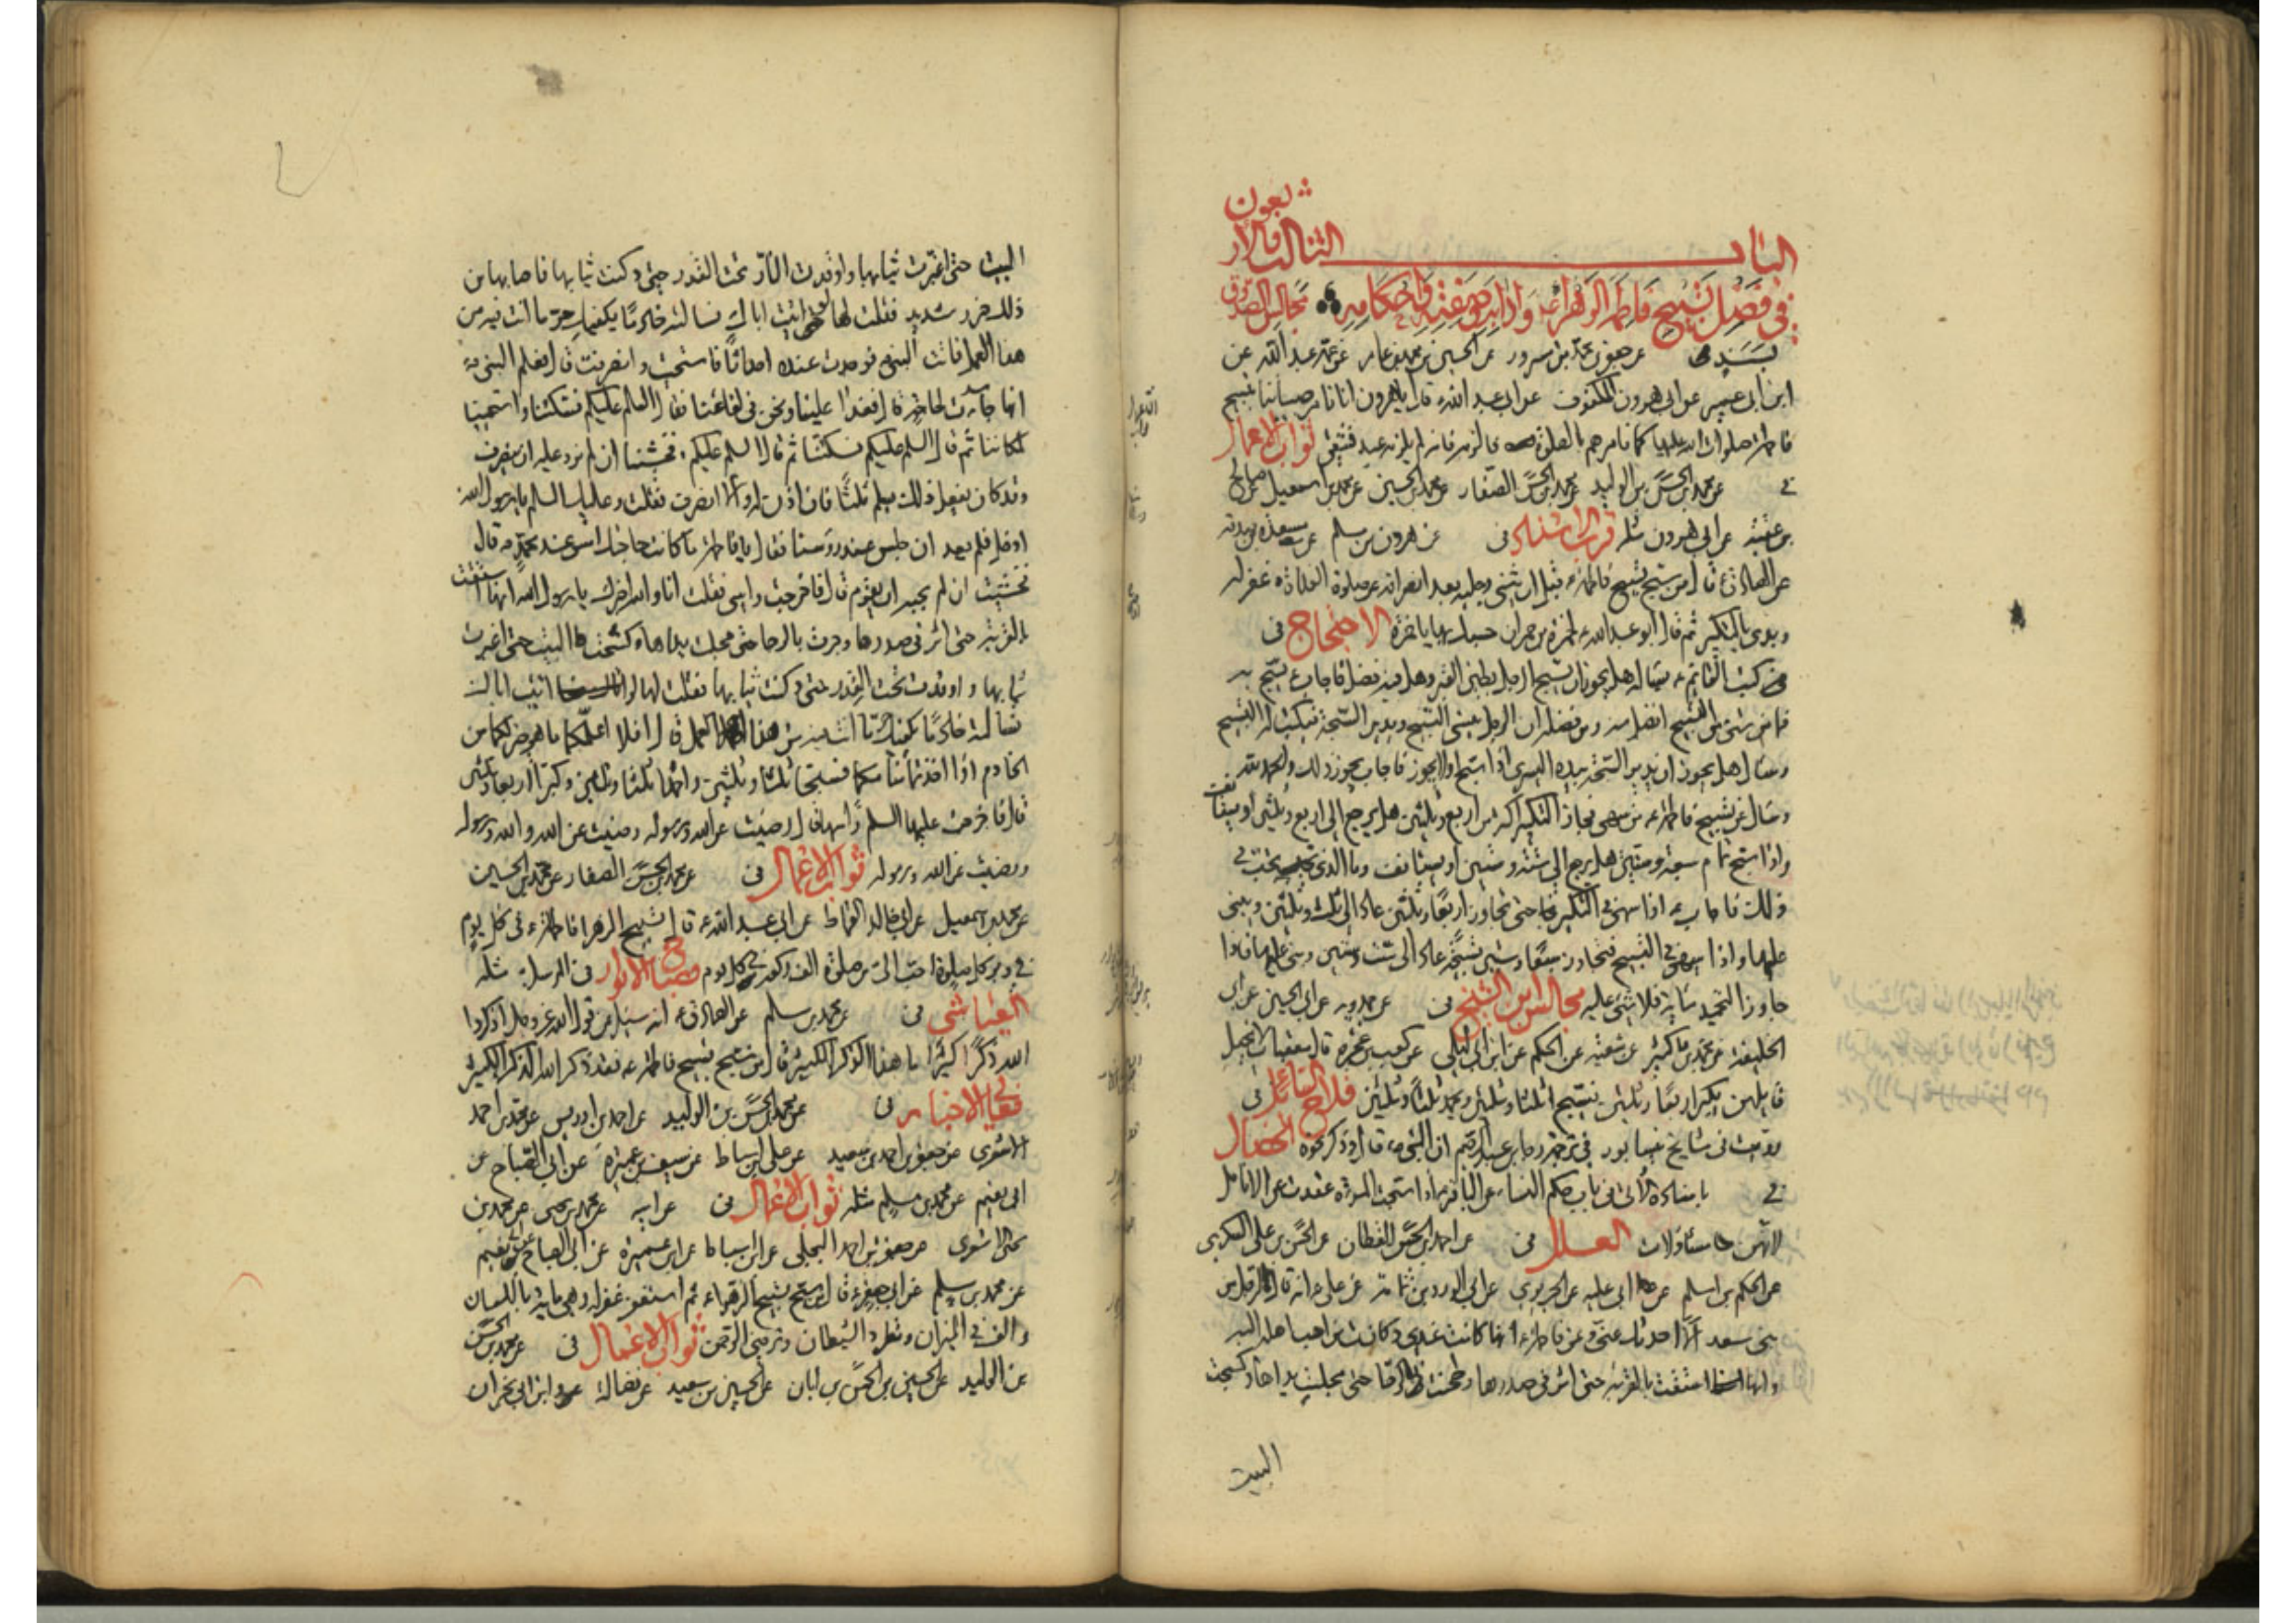 الباب الثالث والأربعون
في فضل تسبيح فاطمة الزهراء ع وآدابه وصفته وأحكامه مجالس الصدوق
عن جعفر بن محمد بن مسرور عن الحسين بن محمد بن عامر عن عمه عبد الله عن
ابن ابي عمير عن ابي هرون المكفوف عن ابي عبد الله ع قال يا هرون انا نامر صبياننا بتسبيح
فاطمة صلوات الله عليها كما نامرهم بالصلوة فالزمه فانه لم يلزمه عبد فشقي ثواب الاعمال
في عن محمد بن الحسن بن الوليد عن محمد بن الحسن الصفار عن محمد بن الحسين عن محمد بن اسمعيل عن صالح
بن عقبة عن ابي هرون مثله قرب الاسناد في عن هرون بن مسلم عن مسعدة بن صدقة
عن الصادق ع قال من سبح تسبيح فاطمة ع قبل ان يثني رجليه بعد انصرافه من صلوة الغداة غفر له
ويبدء بالتكبير ثم قال ابو عبد الله ع لحمزة بن حمران حسبك بها يا حمزة الاحتجاج في
كتب القائم ع سأله هل يجوز ان يسبح الرجل بطين القبر وهل فيه فضل فاجاب ع يسبح به
فما من شيء من التسبيح افضل منه ومن فضله ان الرجل ينسى التسبيح ويدير السبحة فيكتب له التسبيح
وسأل هل يجوز ان يدير السبحة بيده اليسرى اذا سبح او لا يجوز فاجاب يجوز ذلك والحمد لله
وسأل عن تسبيح فاطمة ع من سهى فجاز التكبير اكثر من اربع وثلثين هل يرجع الى اربع وثلثين او يستأنف
واذا سبح تمام سبعة وستين هل يرجع الى ستة وستين او يستأنف وما الذي يجب في
ذلك فاجاب ع اذا سهى في التكبير حتى تجاوز اربعا وثلثين عاد الى ثلث وثلثين ويبني
عليها واذا سهى في التسبيح فتجاوز سبعا وستين تسبيحة عاد الى ست وستين وبنى عليها فاذا
جاوز التحميد مائة فلا شيء عليه مجالس ابن الشيخ في عن حمويه عن ابي الحسين عن ابي
الخليفة عن محمد بن كثير عن شعبة عن الحكم عن ابن ابي ليلى عن كعب بن عجرة قال معقبات لا يخيب
قايلهن يكبر اربعا وثلثين ويسبح ثلثا وثلثين ويحمد ثلثا وثلثين فلاح السائل في
رويت في تاريخ نيسابور في ترجمة رجاء بن عبد الرحيم ان النبي ص قال وذكر نحوه الخصال
في باسناده الاتي في باب حكم النساء عن الباقر ع اذا سبحت المرءة عقدت على الانامل
لانهن مسئولات العلل في عن احمد بن الحسن القطان عن الحسن بن علي السكري
عن الحكم بن اسلم عن ابي علية عن الجريري عن ابي الورد بن ثمامة عن علي ع انه قال لرجل من
بني سعد الا احدثك عني وعن فاطمة ع انها كانت عندي وكانت من احب اهله اليه
وانها استقت بالقربة حتى اثر في صدرها وطحنت بالرحا حتى مجلت يداها وكسحت
البيت
البيت حتى اغبرت ثيابها واوقدت النار تحت القدر حتى دكنت ثيابها فاصابها من
ذلك ضرر شديد فقلت لها لو اتيت اباك فسألته خادما يكفيك حر ما انت فيه من
هذا العمل فاتت النبي ص فوجدت عنده احداثا فاستحت وانصرفت قال فعلم النبي ص
انها جاءت لحاجة قال فغدا علينا ونحن في لفاعنا فقال السلم عليكم فسكتنا واستحيينا
لمكاننا ثم قال السلم عليكم فسكتنا ثم قال السلم عليكم فخشينا ان لم نرد عليه ان ينصرف
وقد كان يفعل ذلك يسلم ثلثا فان اذن له والا انصرف فقلت وعليك السلم يا رسول الله
ادخل فلم يعد ان جلس عند رؤسنا فقال يا فاطمة ما كانت حاجتك امس عند محمد ص قال
فخشيت ان لم نجبه ان يقوم قال فاخرجت راسي فقلت انا والله اخبرك يا رسول الله انها استقت
بالقربة حتى اثر في صدرها وجرت بالرحا حتى مجلت يداها وكسحت البيت حتى اغبرت
ثيابها واوقدت تحت القدر حتى دكنت ثيابها فقلت لها لو اتيت اباك
فسألته خادما يكفيك حر ما انت فيه من هذا العمل قال افلا اعلمكما ما هو خير لكما من
الخادم اذا اخذتما منامكما فسبحا ثلثا وثلثين واحمدا ثلثا وثلثين وكبرا اربعا وثلثين
قال فاخرجت عليها السلم راسها فقالت رضيت عن الله ورسوله رضيت عن الله ورسوله
رضيت عن الله ورسوله ثواب الاعمال في عن محمد بن الحسن الصفار عن محمد بن الحسين
عن محمد بن اسمعيل عن ابي خالد القماط عن ابي عبد الله ع قال تسبيح الزهرا فاطمة ع في كل يوم
في دبر كل صلوة احب الي من صلوة الف ركعة في كل يوم مصباح الانوار في مرسلا مثله
العياشي في عن محمد بن مسلم عن الصادق ع انه سئل عن قول الله عز وجل اذكروا
الله ذكرا كثيرا ما هذا الذكر الكثير قال من سبح تسبيح فاطمة ع فقد ذكر الله الذكر الكثير
معاني الاخبار في عن محمد بن الحسن بن الوليد عن احمد بن ادريس عن محمد بن احمد
الاشعري عن جعفر بن احمد بن سعيد عن علي بن اسباط عن سيف بن عميرة عن ابي الصباح عن
ابي نعيم عن محمد بن مسلم مثله ثواب الاعمال في عن ابيه عن محمد بن يحيى عن محمد بن
يحيى الاشعري عن جعفر بن احمد البجلي عن ابن اسباط عن ابن عميرة عن ابي الصباح عن نعيم
عن محمد بن مسلم عن ابي جعفر ع قال من سبح تسبيح الزهراء ع ثم استغفر غفر له وهي مائة باللسان
والف في الميزان وتطرد الشيطان وترضي الرحمن ثواب الاعمال في عن محمد بن الحسن
بن الوليد عن الحسين بن الحسن بن ابان عن الحسين بن سعيد عن فضالة عن ابن ابي نجران